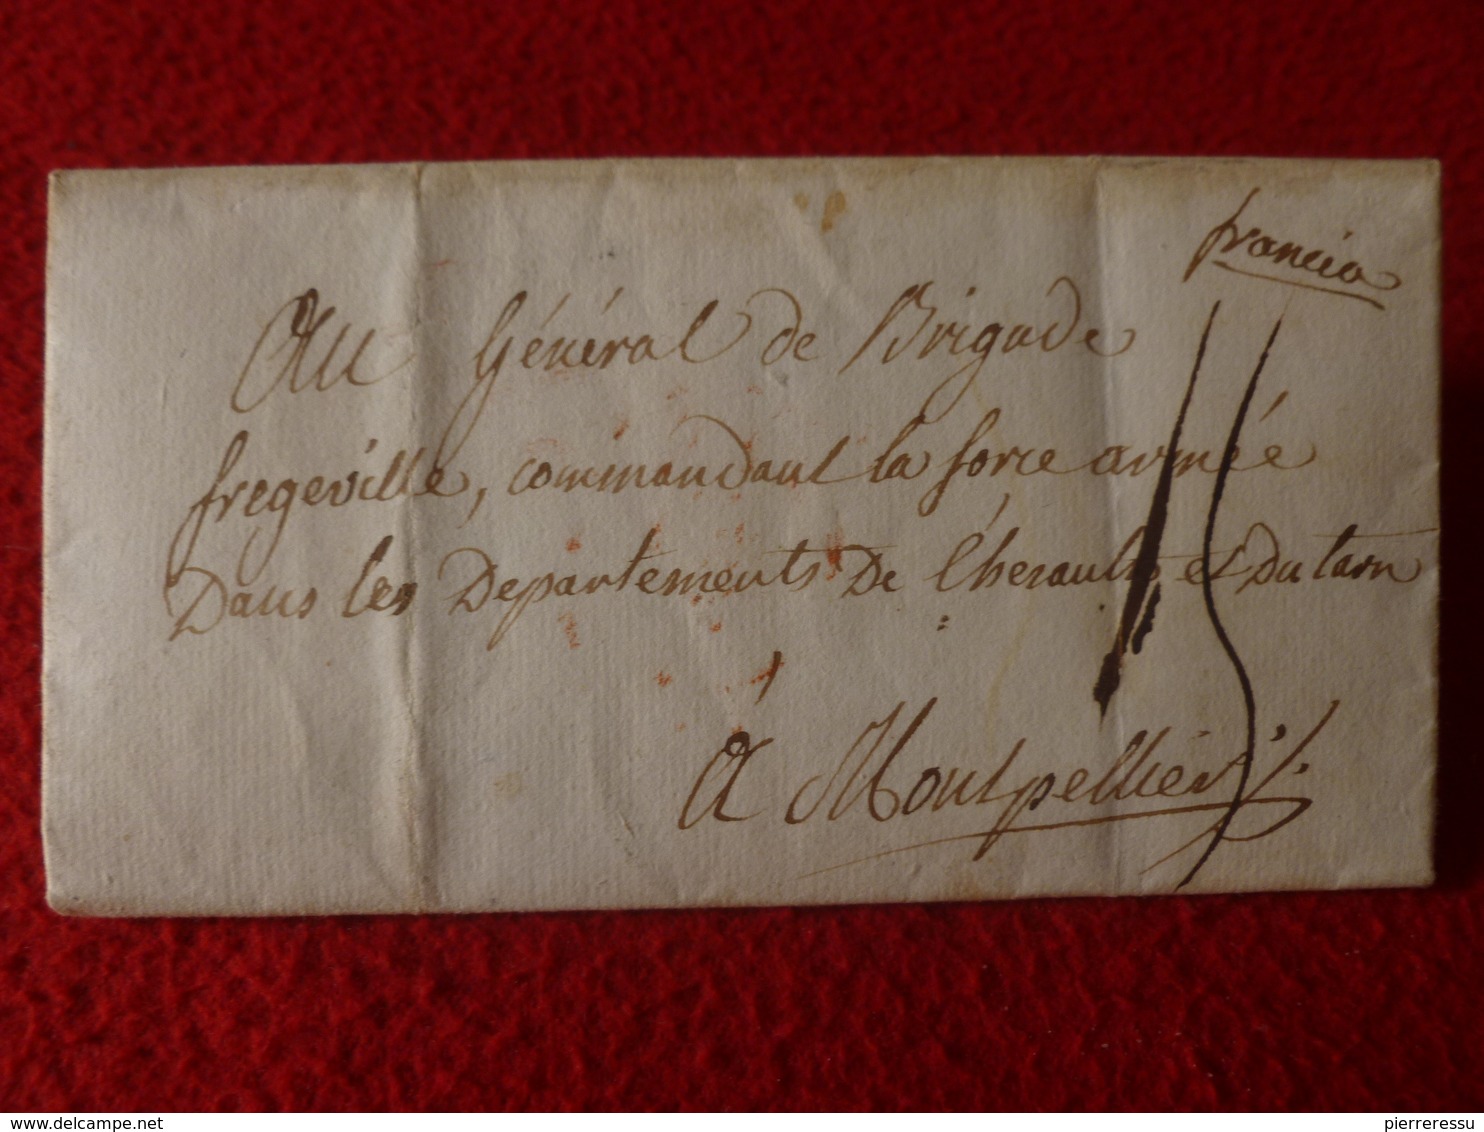 francia
Au Général de Brigade
fregeville, commandant la force armée
Dans les Departements De l'herault, et Du tarn
à Montpellier ./.
15
www.delcampe.net
pierreressu